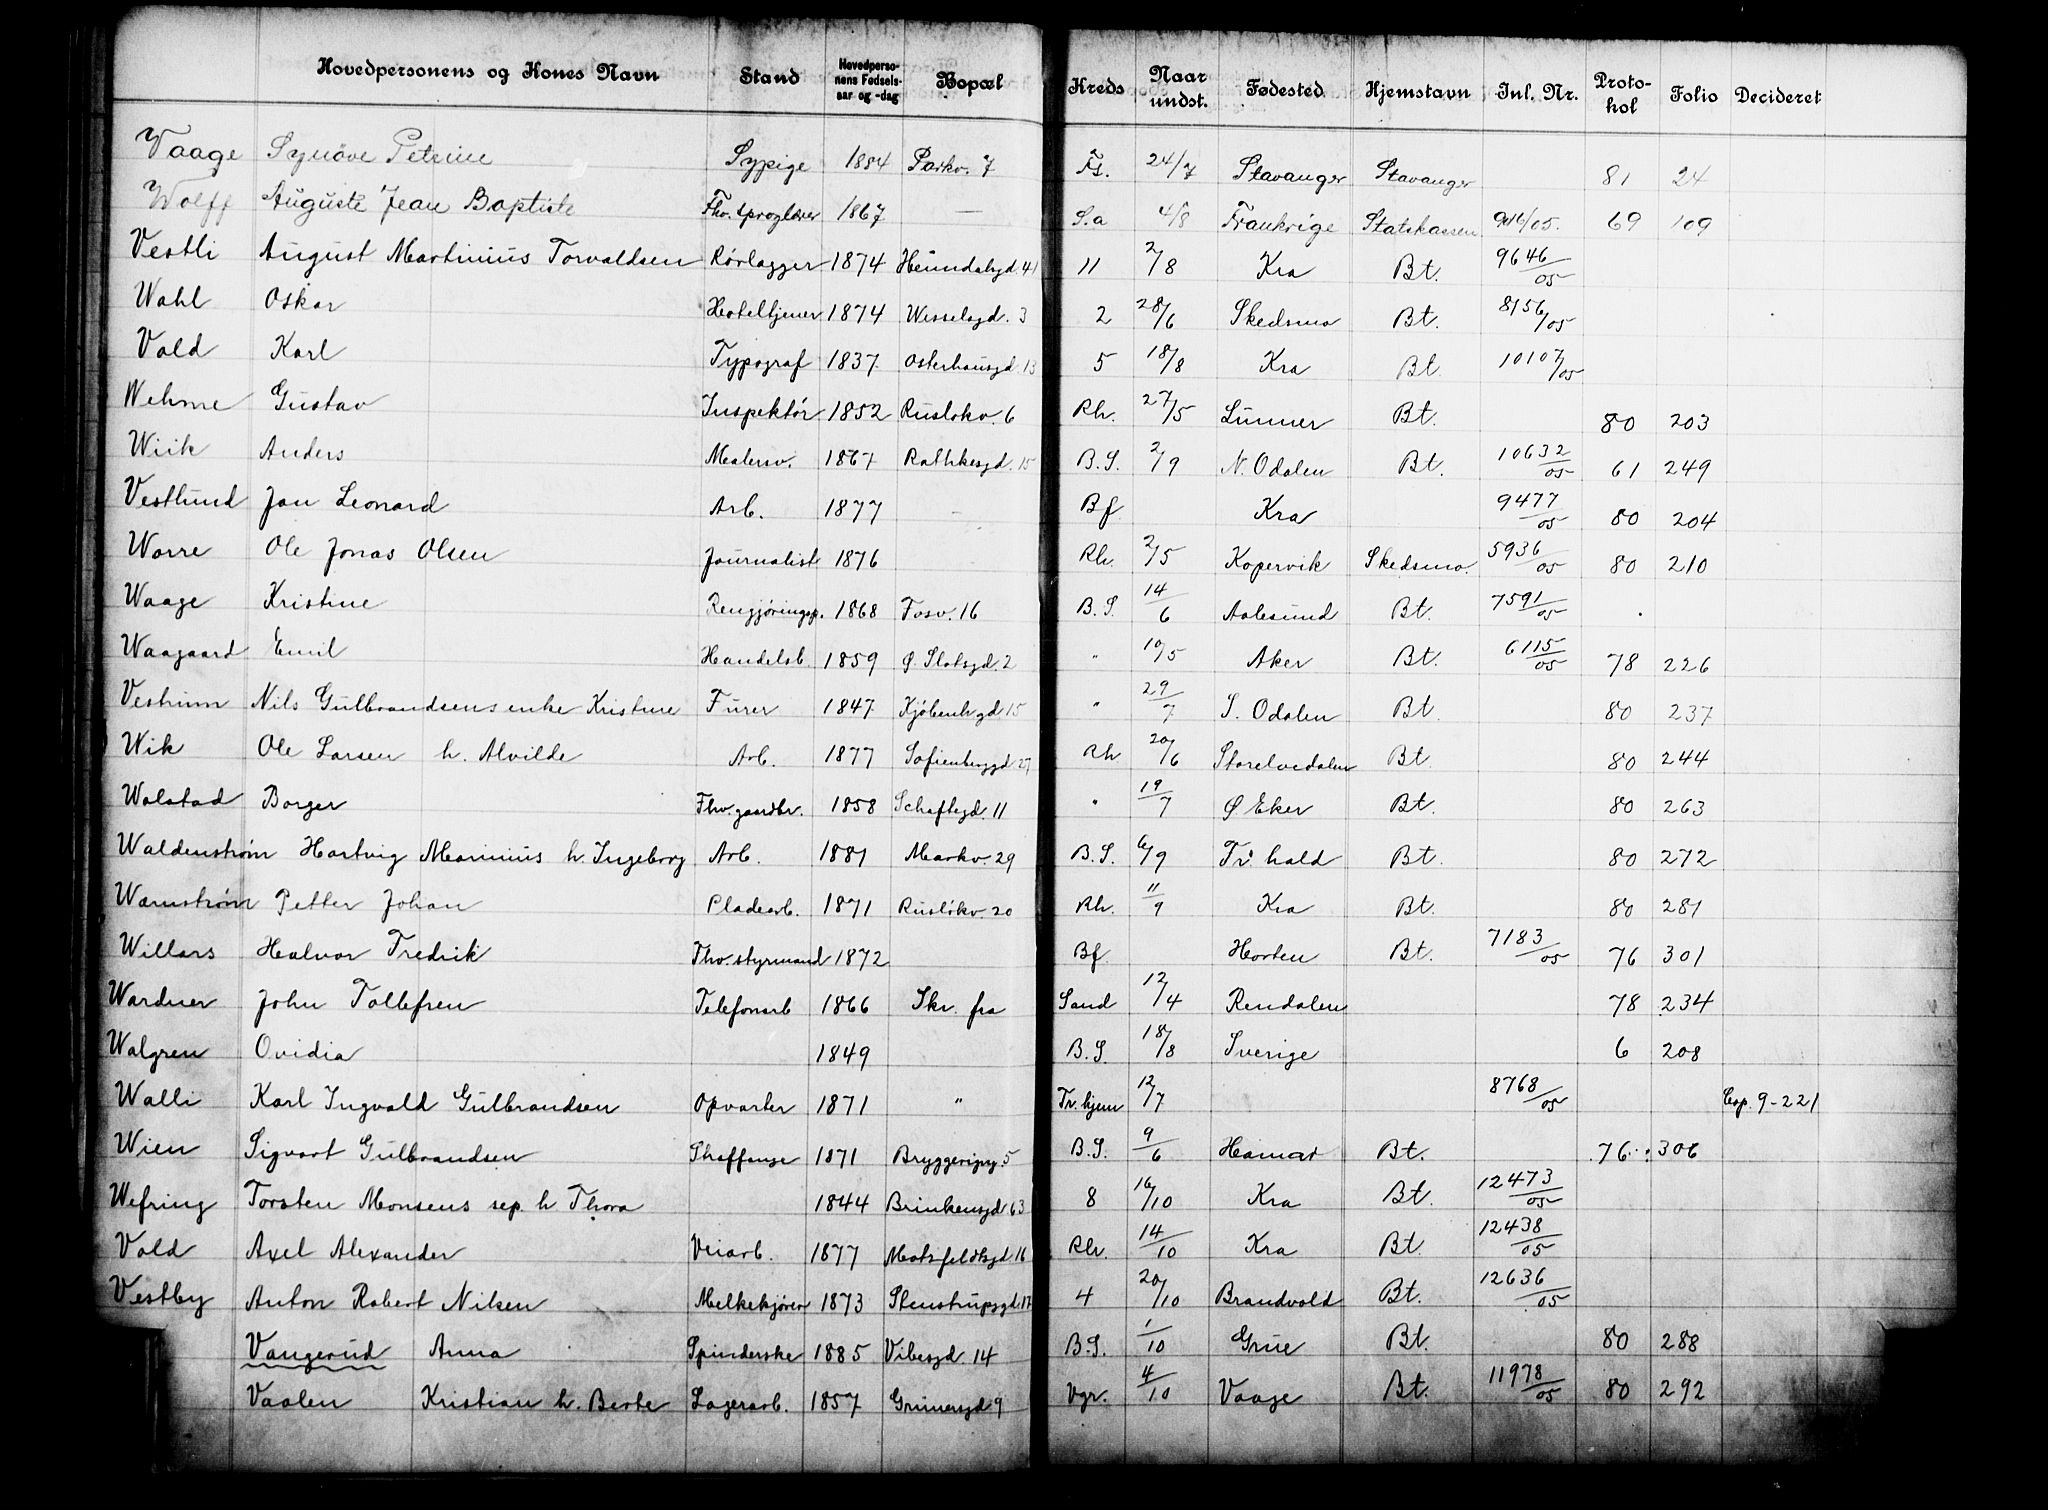 Hovedpersonens og Kones Navn Stand Hovedpersonens Fødselsaar og -dag Bopæl Kreds Naar undst. Fødested Hjemstavn Inl. Nr. Protokol Folio Decideret
Vaage Synöve Petrine Sypige 1884 Parkv. 7 Fs. 24/7 Stavanger Stavanger 81 24
Wolff Auguste Jean Baptiste Fhv. sproglærer 1867 — S.a 4/8 Frankrige Statskassen 69 109
Vestli August Martinius Torvaldsen Rørlægger 1874 Heimdalsgd. 41 11 2/8 Kra Bt. 9646/05
Wahl Oskar Hoteltjener 1874 Wesselsgd. 3 2 28/6 Skedsmo Bt. 8156/05
Vold Karl Typograf 1837 Osterhausgd. 13 5 18/8 Kra Bt. 10107/05
Wehme Gustav Inspektór 1852 Rusløkv. 6 Rh. 27/5 Lunner Bt. 80 203
Wiik Anders Malersv. 1867 Rathkesgd. 15 B.S. 2/9 N. Odalen Bt. 10632/05 61 249
Vestlund Jan Leonard Arb. 1877 - Bf Kra 9477/05 80 204
Warre Ole Jonas Olsen Journalist 1876 Rh. 2/5 Kopervik Skedsmo. 5936/05 80 210
Waage Kristine Rengjøringsp. 1868 Fosv. 16 B.S. 14/6 Aalesund Bt. 7591/05
Waagaard Emil Handelsb. 1859 Ø. Slotsgd. 2 " 10/5 Aker Bt. 6115/05 78 226
Vestrum Nils Gulbrandsens enke Kristine Furer 1847 Kjøbenhgd 15 " 29/7 S. Odalen Bt. 80 237
Wik Ole Larsen h. Alvilde Arb. 1877 Sofienberggd 27 Rh 20/6 Storelvedalen Bt. 80 244
Walstad Borger Fhv. gaardbr. 1858 Schaftegd. 11 " 19/7 Ø Eker Bt. 80 263
Waldenstrøm Hartvig Marinius h. Ingeborg Arb. 1881 Markv. 29 B.S. 6/9 Fr. hald Bt. 80 272
Warnstrøm Petter Johan Pladearb. 1871 Rusløkv. 20 Rh. 11/9 Kra Bt. 80 281
Willars Halvor Fredrik Fhv. styrmand 1872 Bf. Horten Bt. 7183/05 76 301
Wardner John Tollefsen Telefonarb 1866 Skr. fra Sand 12/4 Rendalen 78 234
Walgren Ovidia 1849 B.S. 18/8 Sverige 6 208
Walli Karl Ingvald Gulbrandsen Opvarter 1871 " Tr. hjem 12/7 8768/05 Cop. 9-221
Wien Sigvart Gulbrandsen 1871 Bryggerigg. 5 B.S. 9/6 Hamar Bt. 76 306
Wefring Torsten Monsens sep. h Thora 1844 Brinkensgd 63 8 16/10 Kra Bt. 12473/05
Vold Axel Alexander Veiarb. 1877 Motzfeldtsgd. 16 Rh. 14/10 Kra Bt. 12438/05
Vestby Anton Robert Nilsen Melkekjører 1873 Stenstrupsgd. 17 4 20/10 Brandvold Bt. 12636/05
Vangerud Anna Spinderske 1885 Vibesgd. 14 B.S. 1/10 Grue Bt. 80 288
Vaalen Kristian h. Berte Lagerarb. 1857 Grünersgd 9 Vgr. 4/10 Vaage Bt. 11978/05 80 292